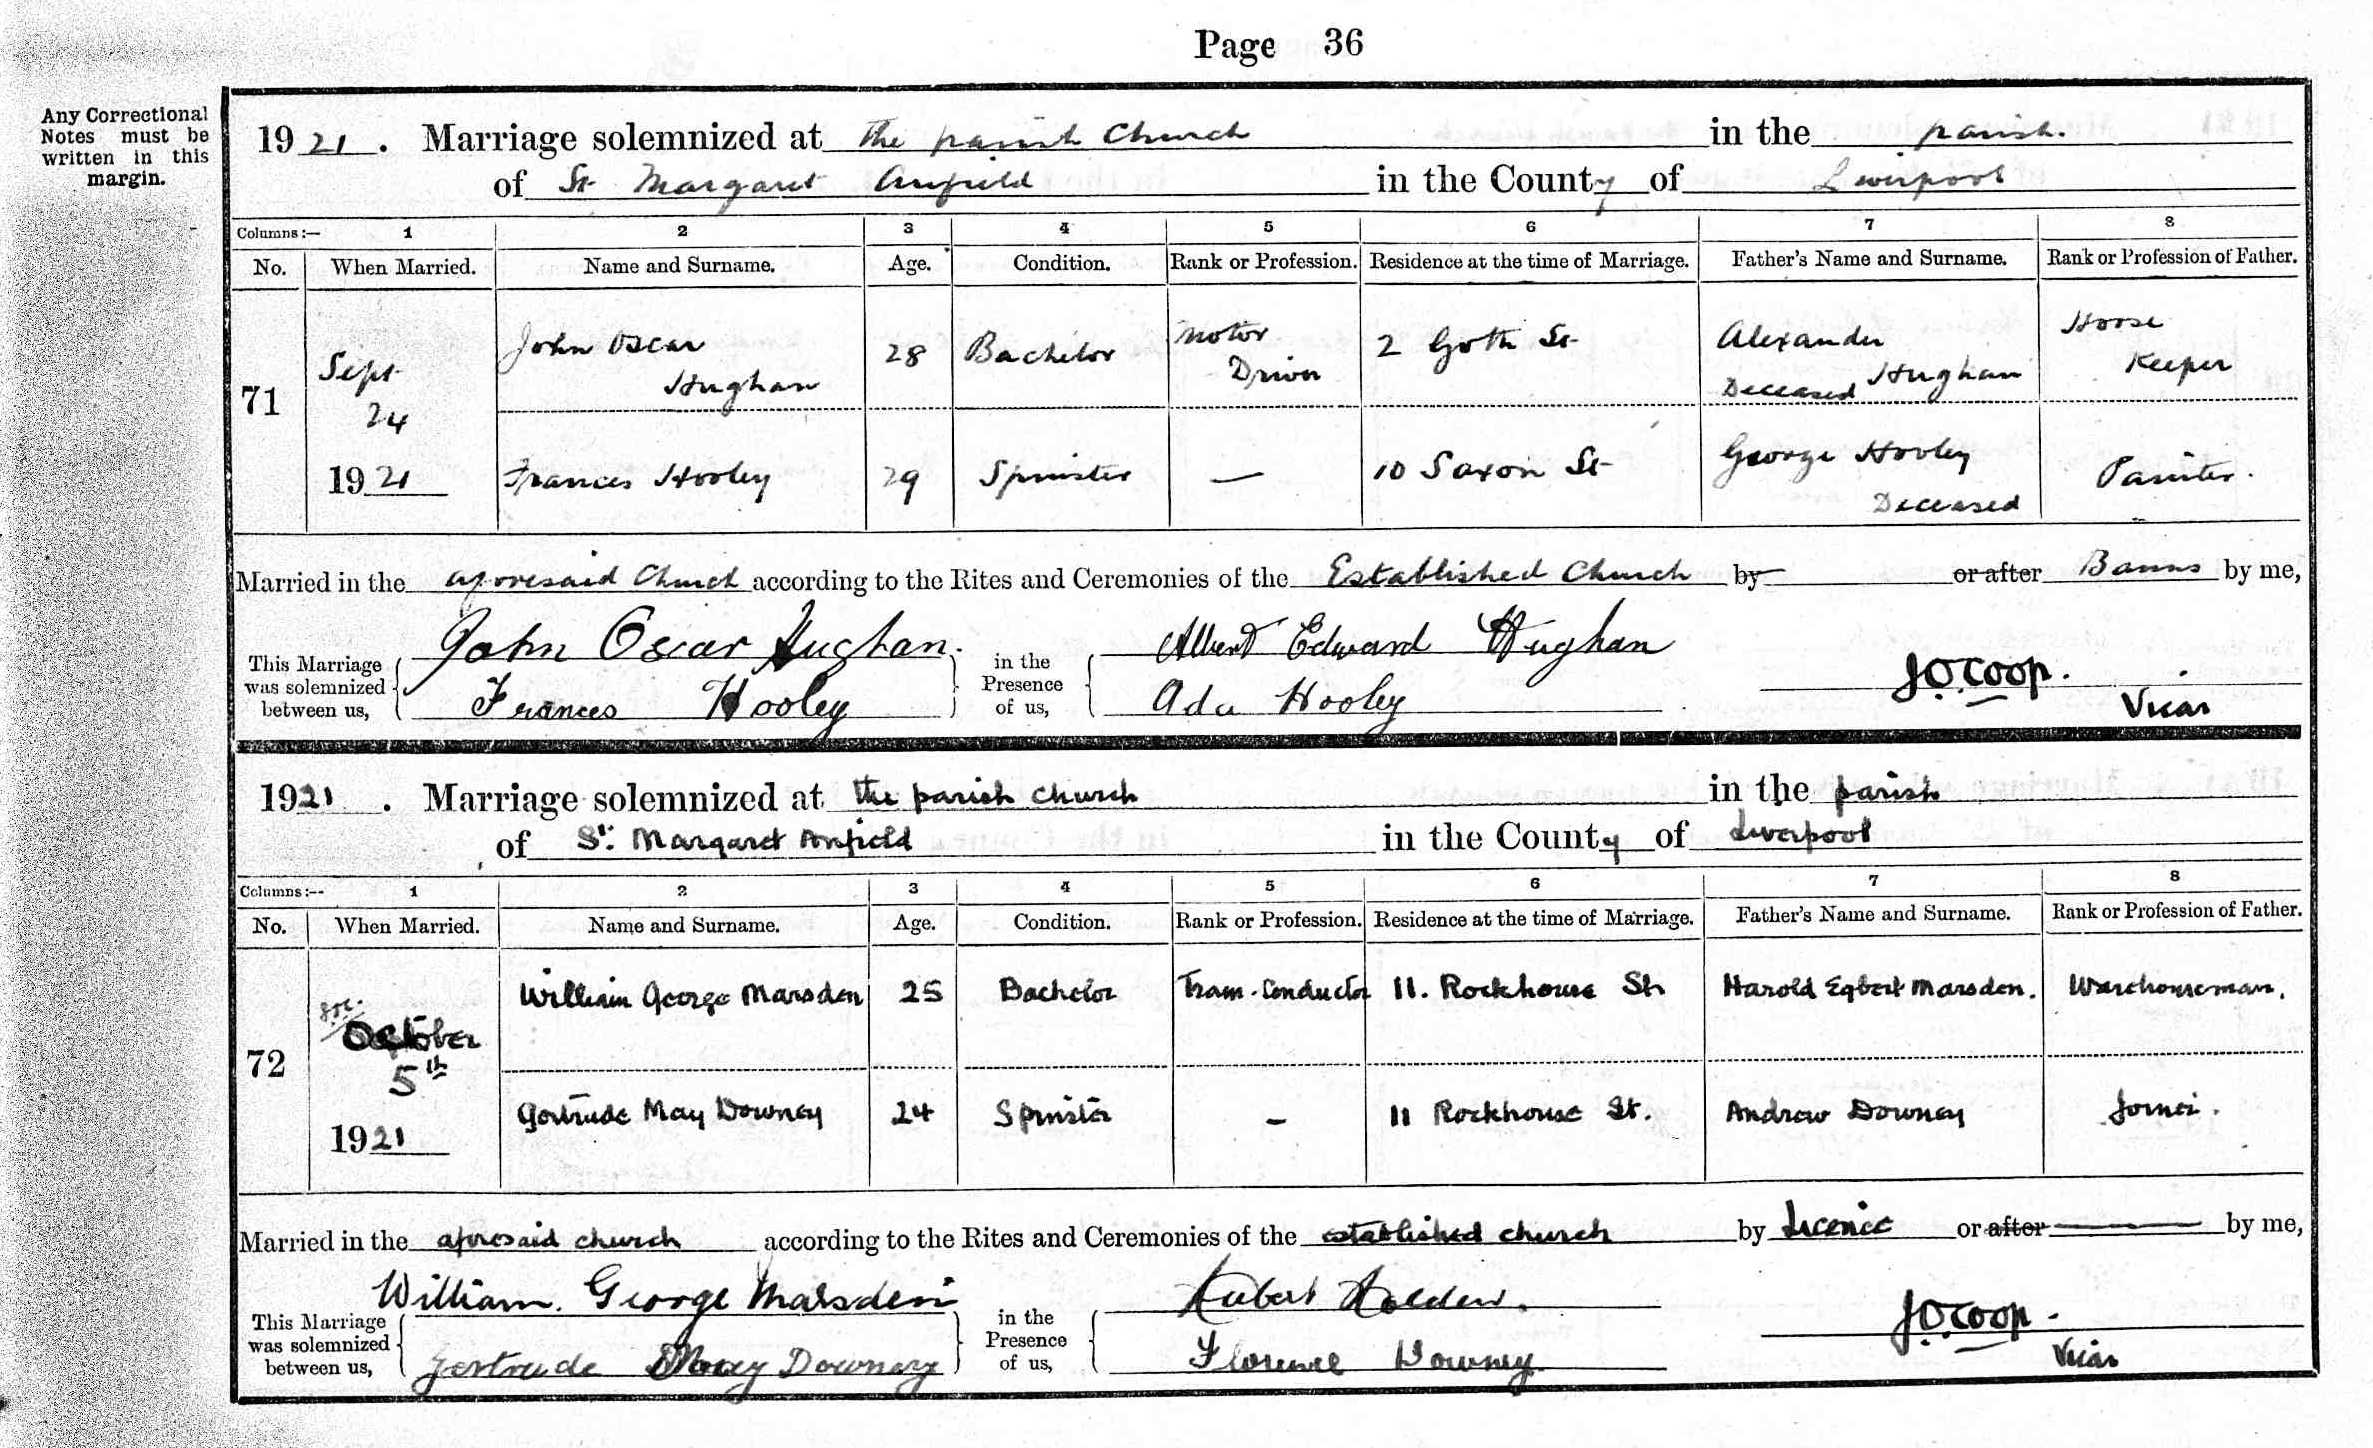 Page 36
Any Correctional
Notes must be
written in this
margin.
1921. Marriage solemnized at the parish Church in the parish.
of St Margaret Anfield in the County of Liverpool
Columns:— 1 2 3 4 5 6 7 8
No. When Married. Name and Surname. Age. Condition. Rank or Profession. Residence at the time of Marriage. Father's Name and Surname. Rank or Profession of Father.
71 Sept 24 1921
John Oscar Hughan 28 Bachelor Motor Driver 2 Goth St Alexander Hughan Deceased Horse Keeper
Frances Hooley 29 Spinster — 10 Saxon St George Hooley Deceased Painter.
Married in the aforesaid Church according to the Rites and Ceremonies of the Established Church by or after Banns by me,
This Marriage was solemnized between us, John Oscar Hughan. Frances Hooley
in the Presence of us, Albert Edward Hughan Ada Hooley
J O Coop. Vicar
1921. Marriage solemnized at the parish church in the parish
of St. Margaret Anfield in the County of Liverpool
Columns:— 1 2 3 4 5 6 7 8
No. When Married. Name and Surname. Age. Condition. Rank or Profession. Residence at the time of Marriage. Father's Name and Surname. Rank or Profession of Father.
72 October 5th 1921
William George Marsden 25 Bachelor Tram-Conductor 11. Rockhouse St. Harold Egbert Marsden. Warehouseman.
Gertrude May Downey 24 Spinster — 11 Rockhouse St. Andrew Downey Joiner.
Married in the aforesaid church according to the Rites and Ceremonies of the established church by Licence or after by me,
This Marriage was solemnized between us, William. George Marsden Gertrude May Downey
in the Presence of us, Hubert Holden. Florence Downey.
J O Coop. Vicar